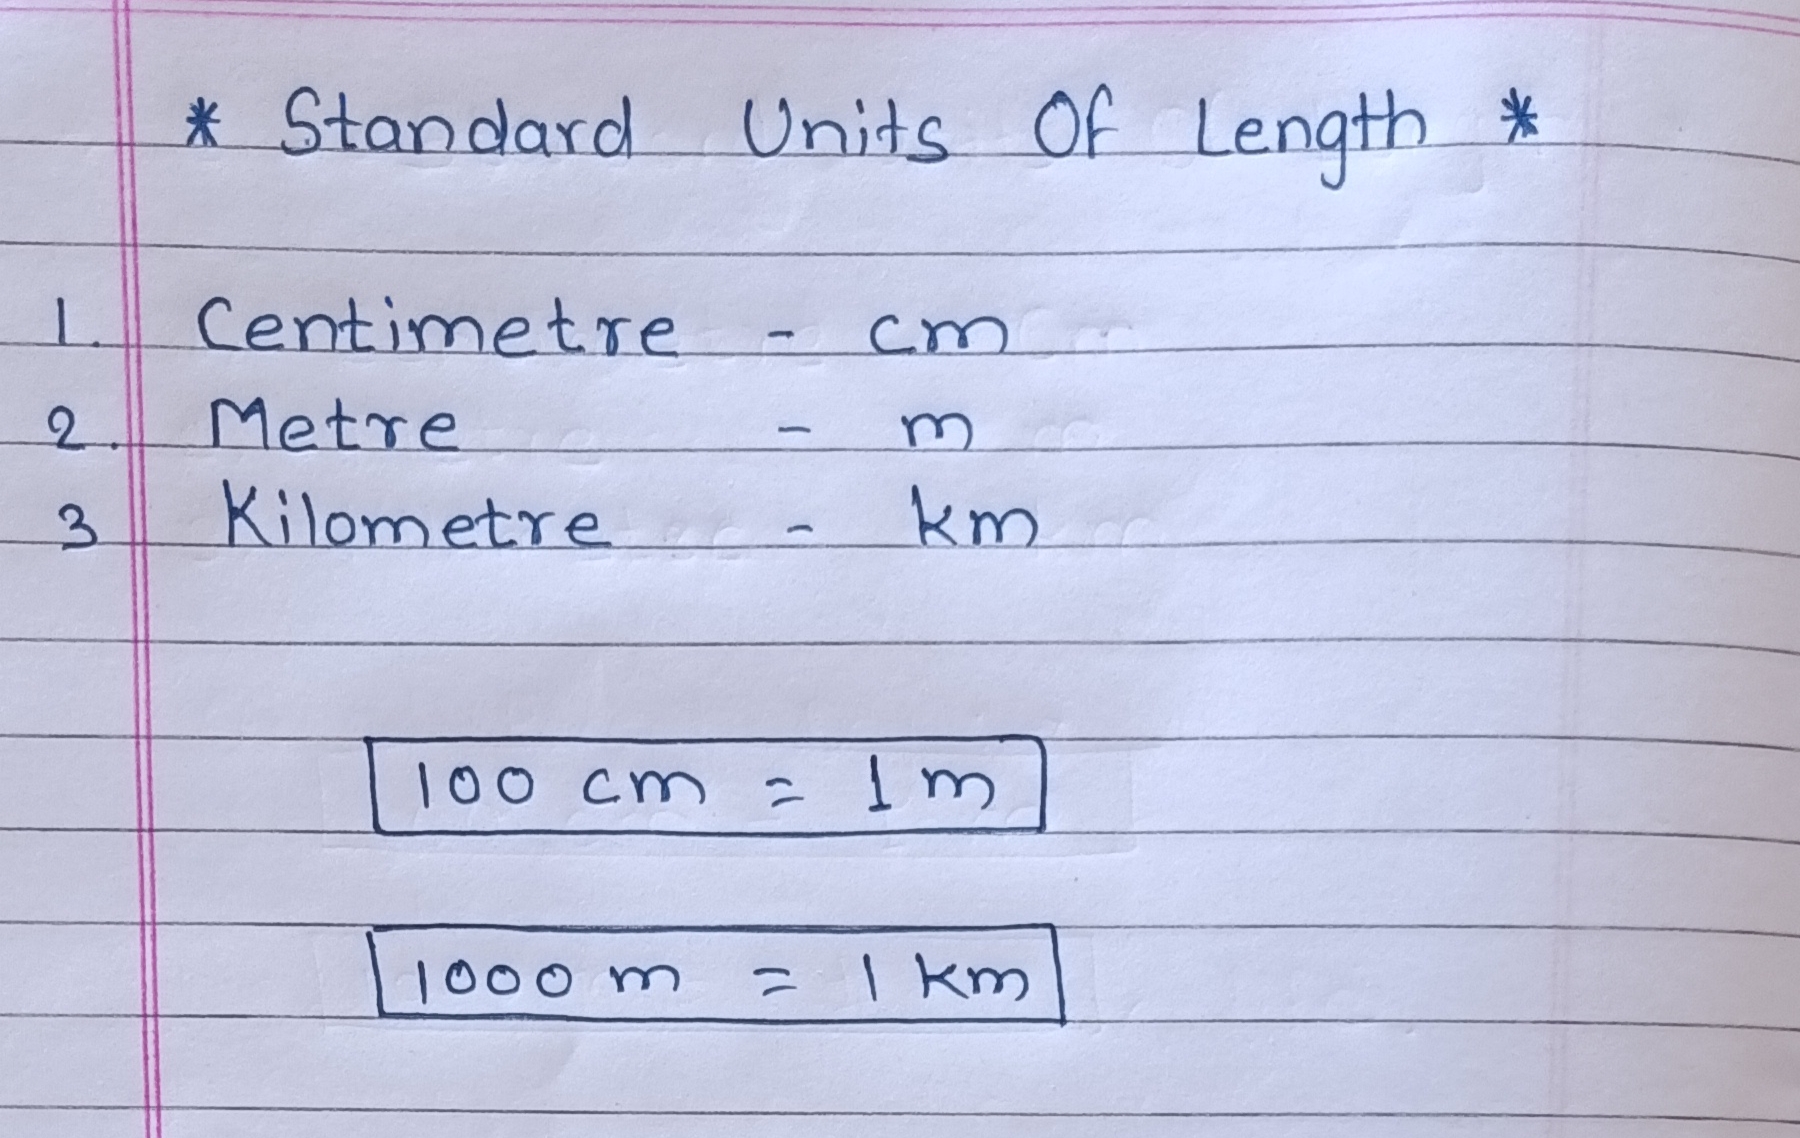 * Standard Units Of Length *
1. Centimetre - cm
2. Metre - m
3 Kilometre - km
100 cm = 1 m
1000 m = 1 km